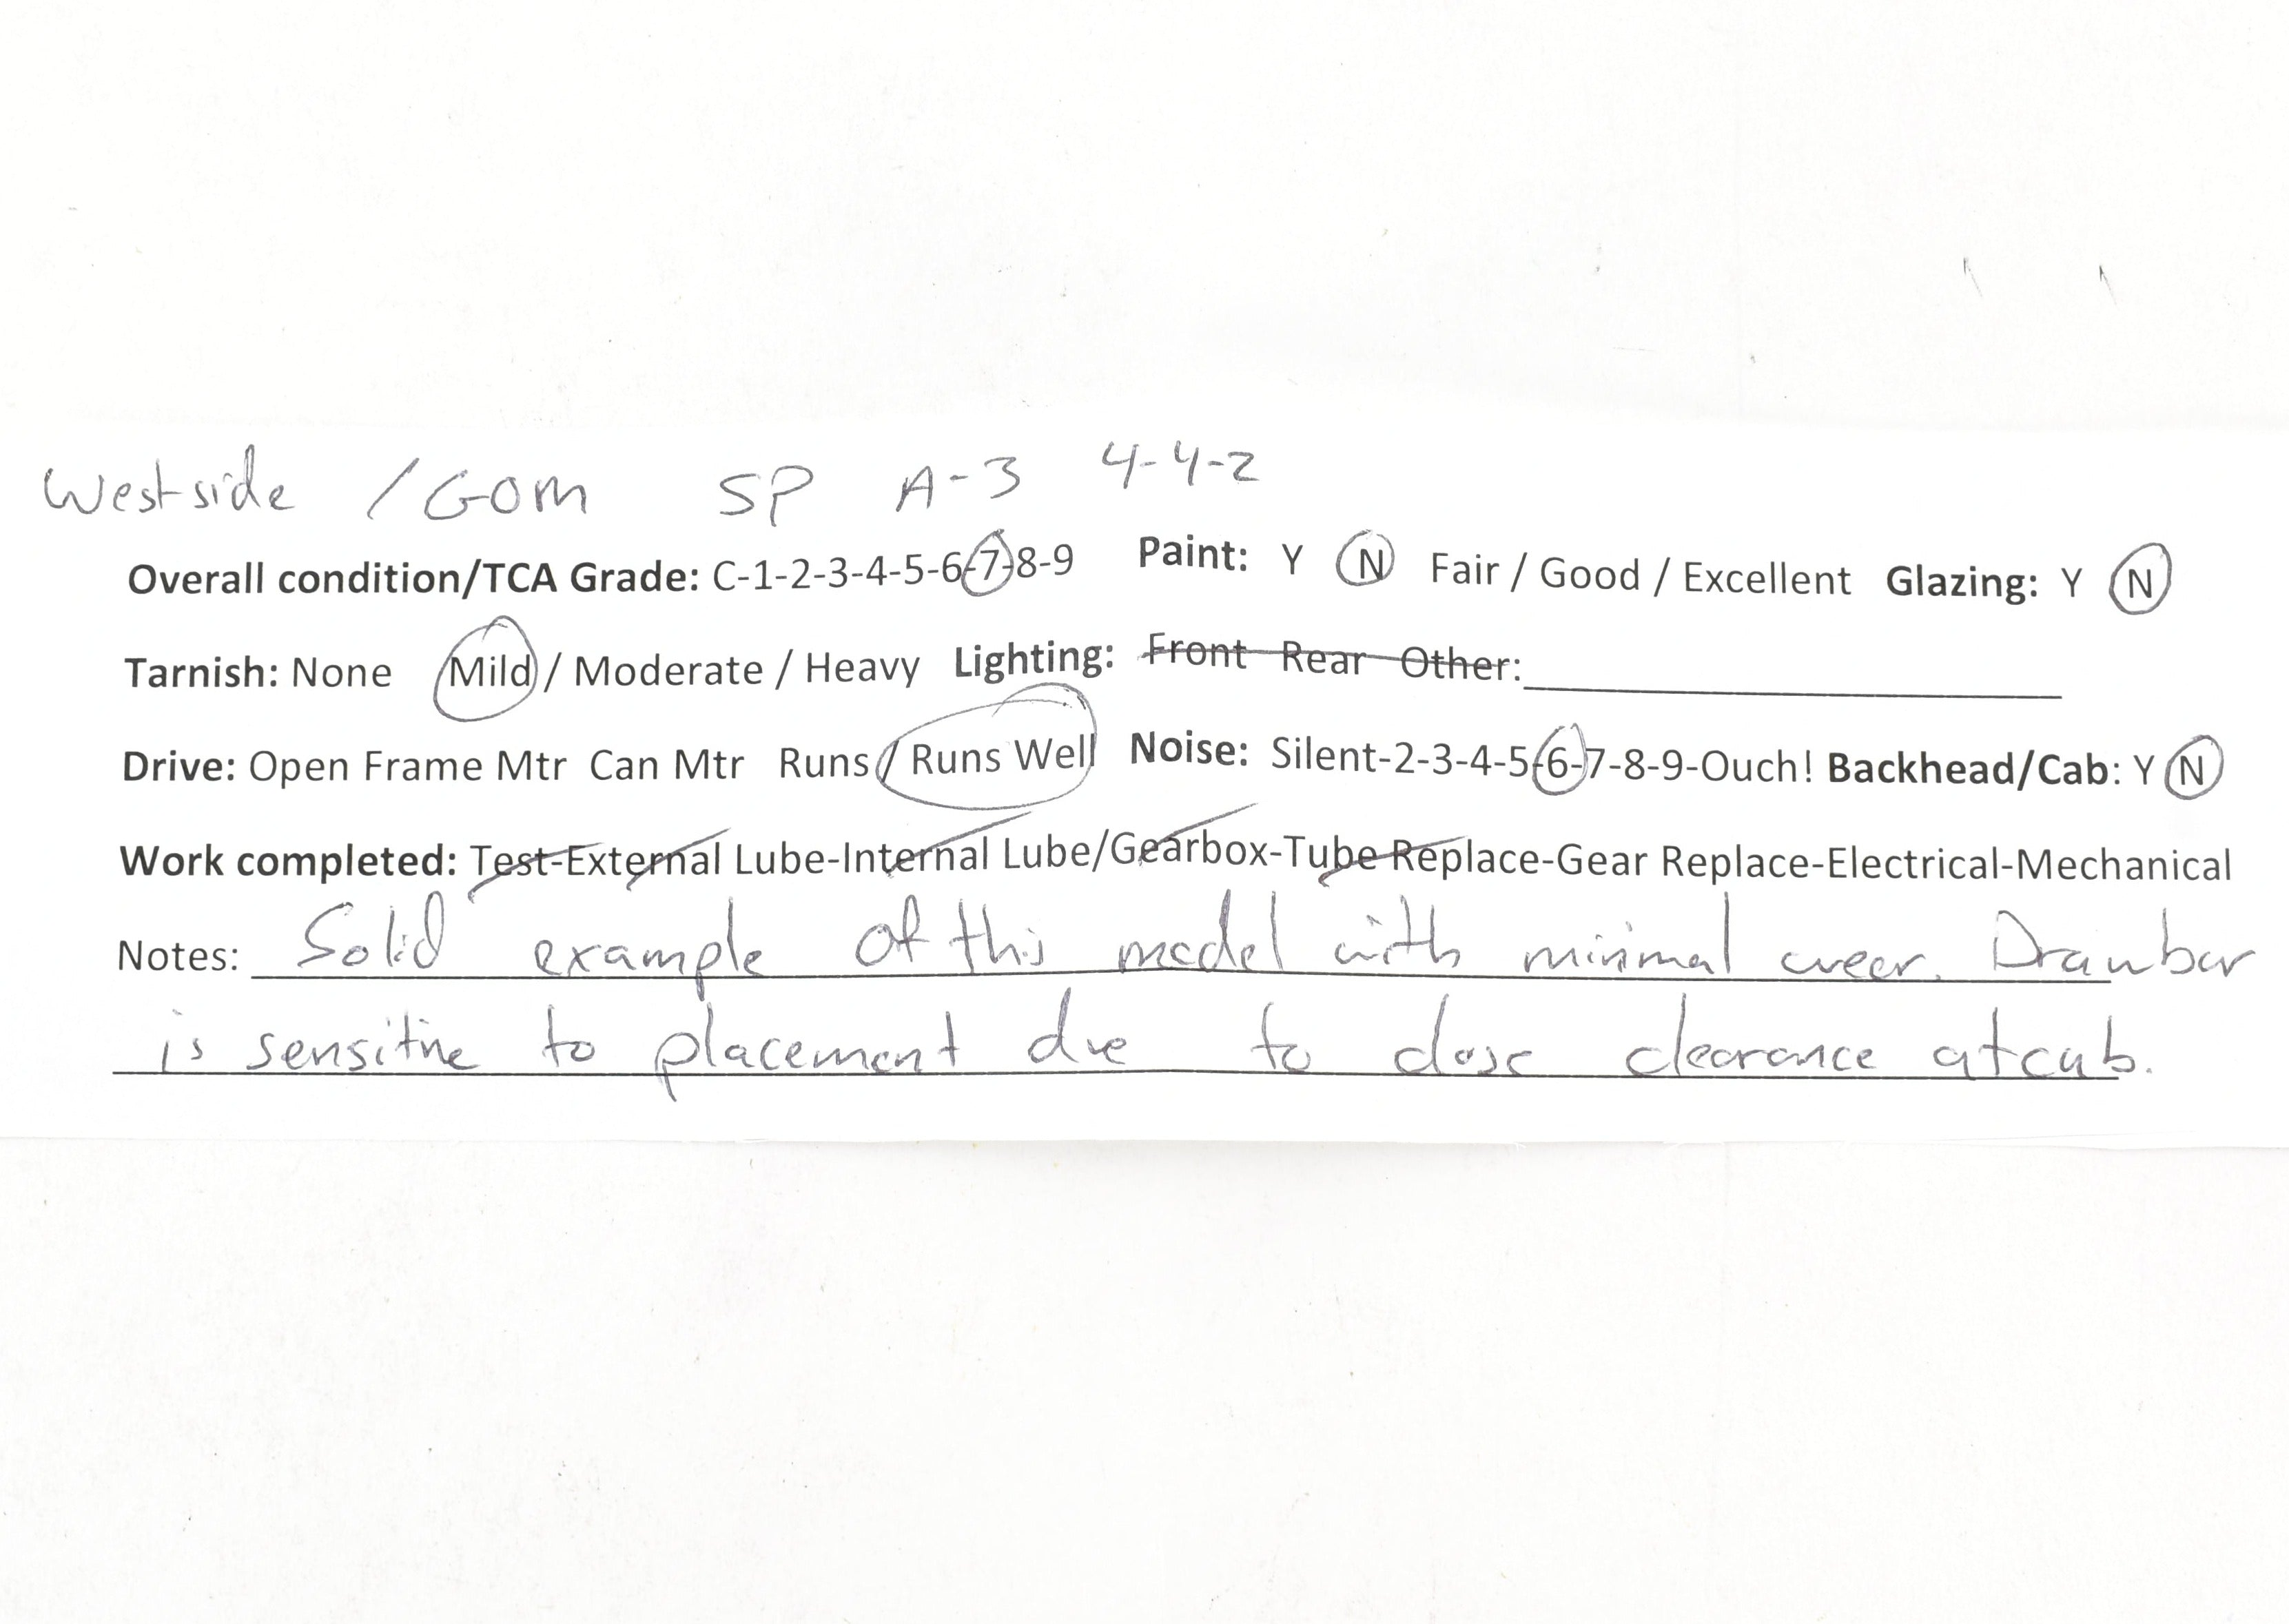 Westside / GOM SP A-3 4-4-2
Overall condition/TCA Grade: C-1-2-3-4-5-6-7-8-9 Paint: Y N Fair / Good / Excellent Glazing: Y N
Tarnish: None Mild / Moderate / Heavy Lighting: Front Rear Other:
Drive: Open Frame Mtr Can Mtr Runs / Runs Well Noise: Silent-2-3-4-5-6-7-8-9-Ouch! Backhead/Cab: Y N
Work completed: Test-External Lube-Internal Lube/Gearbox-Tube Replace-Gear Replace-Electrical-Mechanical
Notes: Solid example of this model with minimal wear. Drawbar
is sensitive to placement due to close clearance at cab.